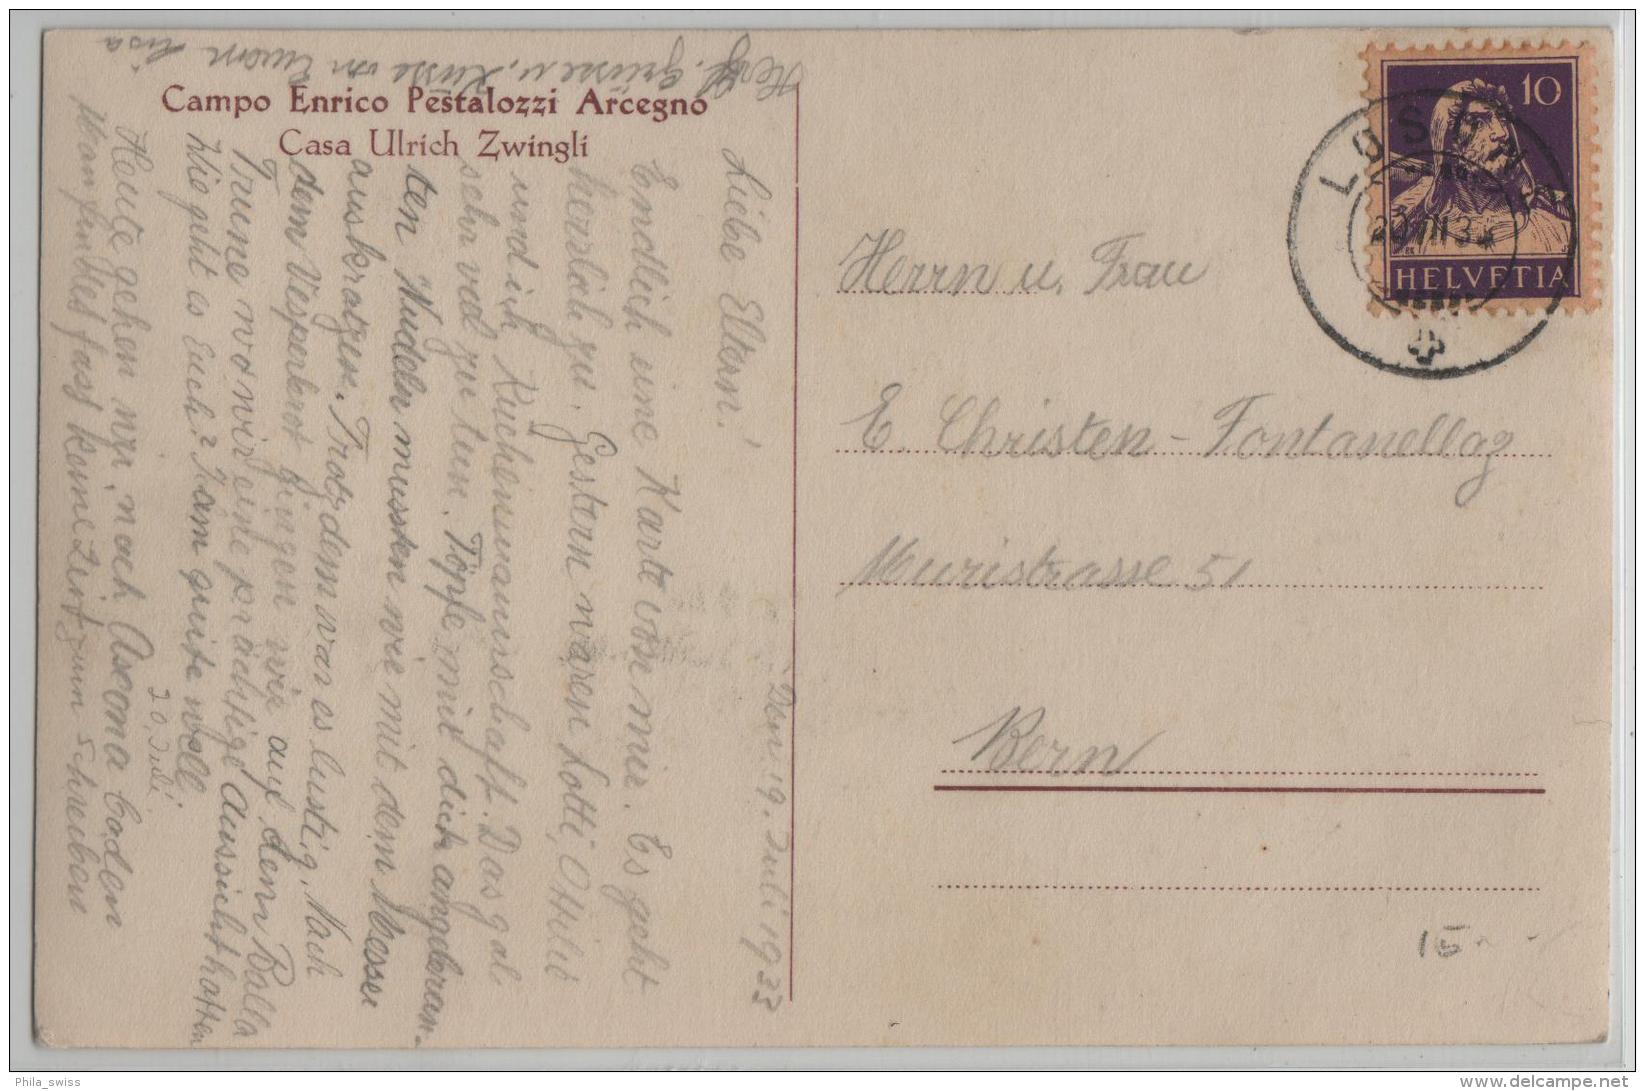 Campo Enrico Pestalozzi Arcegno
Casa Ulrich Zwingli
Den 19. Juli 1933
Liebe Eltern!
Endlich eine Karte von mir. Es geht
herrlich zu. Gestern waren Lotti, Ottilie
und ich Küchenmannschaft. Das gab
sehr viel zu tun. Töpfe mit dick angebran-
ten Nudeln mussten wir mit dem Messer
auskratzen. Trotzdem war es lustig. Nach
dem Vesperbrot gingen wir auf den Balla
Trune wo wir eine prächtige Aussicht hatten
Wie geht es Euch? Mam gute well
20. Juli.
Heute gehen wir nach Ascona baden
Man findet fast keine Zeit zum schreiben
Herzl. Grüsse u. Küsse von Euern Lisa
Herrn u. Frau
E. Christen-Fontanellaz
Muristrasse 51
Bern
15
10
HELVETIA
LOSONE
20 VII 33
Phila_swiss
delcampe.net